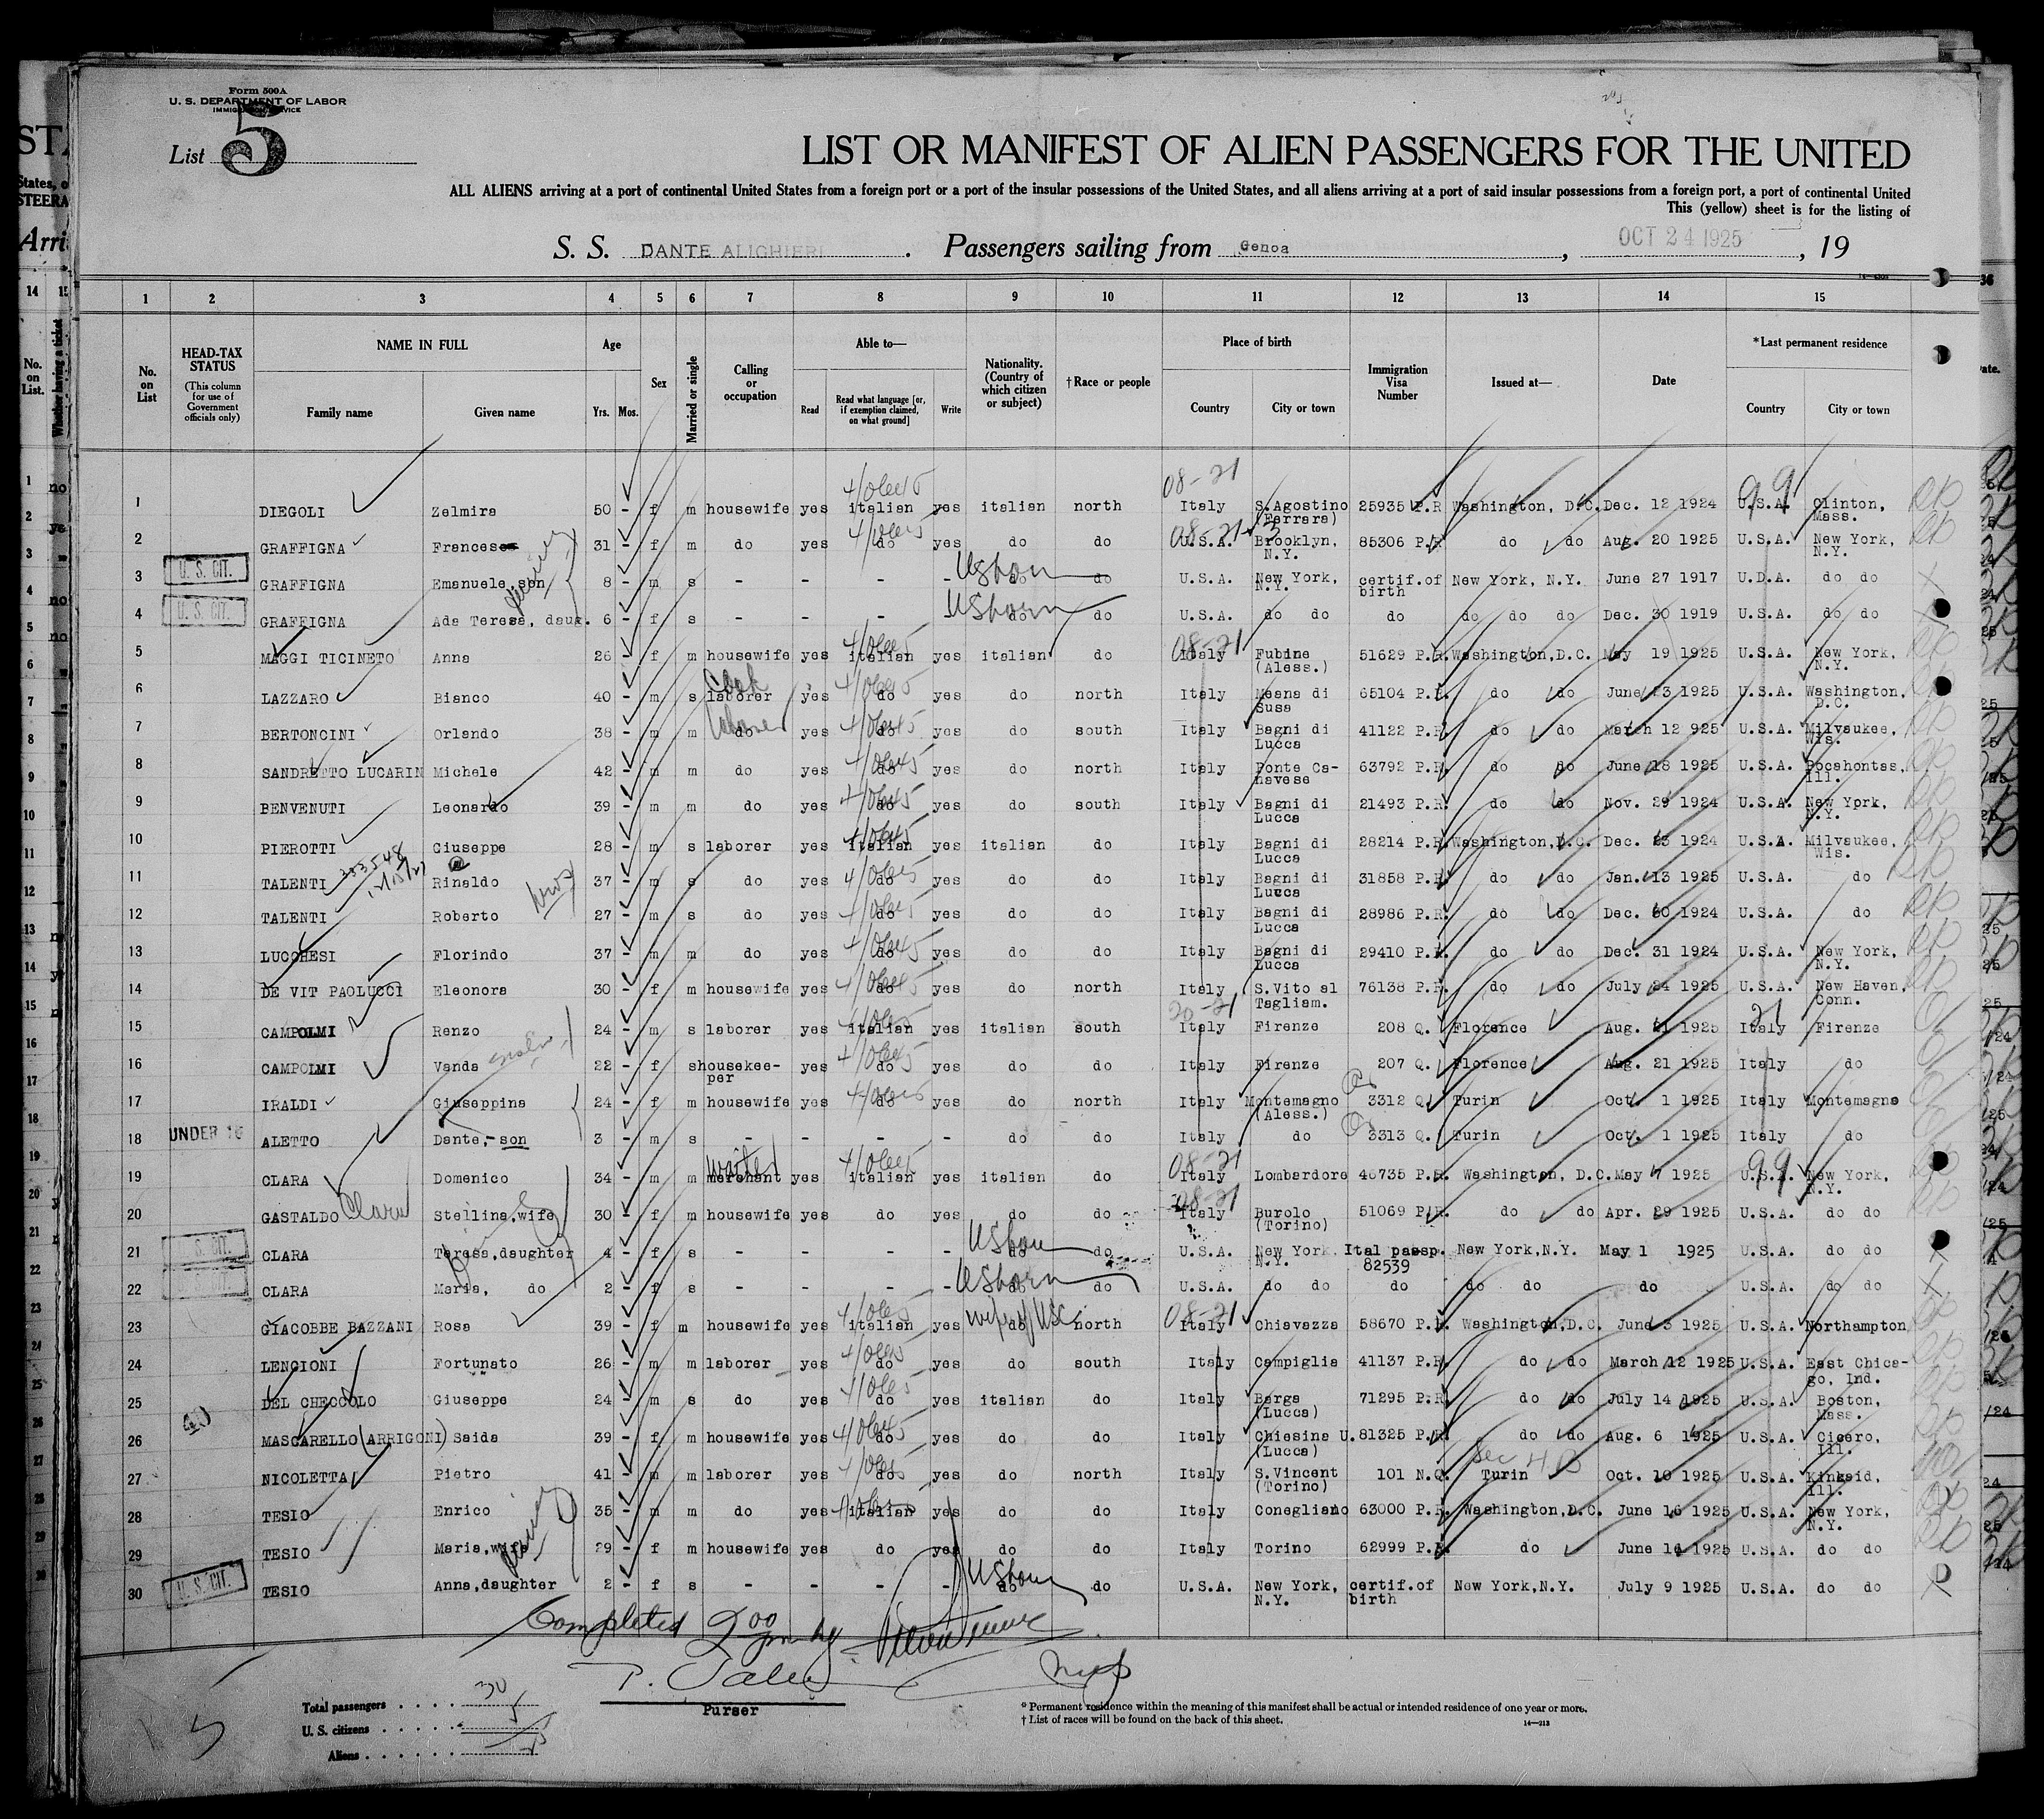 Form 500A
U. S. DEPARTMENT OF LABOR
IMMIGRATION SERVICE
List 5
LIST OR MANIFEST OF ALIEN PASSENGERS FOR THE UNITED
ALL ALIENS arriving at a port of continental United States from a foreign port or a port of the insular possessions of the United States, and all aliens arriving at a port of said insular possessions from a foreign port, a port of continental United
This (yellow) sheet is for the listing of
S. S. DANTE ALIGHIERI. Passengers sailing from Genoa, OCT 24 1925, 19
1 2 3 4 5 6 7 8 9 10 11 12 13 14 15
No. on List
HEAD-TAX STATUS (This column for use of Government officials only)
NAME IN FULL
Family name Given name
Age Yrs. Mos.
Sex
Married or single
Calling or occupation
Able to—
Read Read what language [or, if exemption claimed, on what ground] Write
Nationality. (Country of which citizen or subject)
†Race or people
Place of birth
Country City or town
Immigration Visa Number
Issued at—
Date
*Last permanent residence
Country City or town
1 DIEGOLI Zelmira 50 - f m housewife yes italian yes italian north Italy S.Agostino (Ferrara) 25935 P.R Washington, D.C. Dec. 12 1924 U.S.A. Clinton, Mass.
2 GRAFFIGNA Frances 31 - f m do yes do yes do do U.S.A. Brooklyn, N.Y. 85306 P.R do do Aug. 20 1925 U.S.A. New York, N.Y.
3 U. S. CIT. GRAFFIGNA Emanuele, son 8 - m s - - - - US born do U.S.A. New York, N.Y. certif.of birth New York, N.Y. June 27 1917 U.D.A. do do
4 U. S. CIT. GRAFFIGNA Ada Teresa, daug. 6 - f s - - - - US born do U.S.A. do do do do do do Dec. 30 1919 U.S.A. do do
5 MAGGI TICINETO Anna 26 - f m housewife yes italian yes italian do Italy Fubine (Aless.) 51629 P.R. Washington, D.C. May 19 1925 U.S.A. New York, N.Y.
6 LAZZARO Bianco 40 - m s laborer Cook yes do yes do north Italy Meana di Susa 65104 P.R. do do June 23 1925 U.S.A. Washington, D.C.
7 BERTONCINI Orlando 38 - m m do yes do yes do south Italy Bagni di Lucca 41122 P.R. do do March 12 925 U.S.A. Milvaukee, Wis.
8 SANDRETTO LUCARIN Michele 42 - m m do yes do yes do north Italy Ponte Canavese 63792 P.R. do do June 18 1925 U.S.A. Pocahontas, Ill.
9 BENVENUTI Leonardo 39 - m m do yes do yes do south Italy Bagni di Lucca 21493 P.R. do do Nov. 29 1924 U.S.A. New York, N.Y.
10 PIEROTTI Giuseppe 28 - m s laborer yes italian yes italian do Italy Bagni di Lucca 28214 P.R. Washington, D.C. Dec. 23 1924 U.S.A. Milvaukee, Wis.
11 TALENTI Rinaldo 37 - m s do yes do yes do do Italy Bagni di Lucca 31858 P.R. do do Jan. 13 1925 U.S.A. do
12 TALENTI Roberto 27 - m s do yes do yes do do Italy Bagni di Lucca 28986 P.R. do do Dec. 30 1924 U.S.A. do
13 LUCCHESI Florindo 37 - m m do yes do yes do do Italy Bagni di Lucca 29410 P.R. do do Dec. 31 1924 U.S.A. New York, N.Y.
14 DE VIT PAOLUCCI Eleonora 30 - f m housewife yes do yes do north Italy S.Vito al Tagliam. 76138 P.R. do do July 24 1925 U.S.A. New Haven, Conn.
15 CAMPOLMI Renzo 24 - m s laborer yes italian yes italian south Italy Firenze 208 Q. Florence Aug. 21 1925 Italy Firenze
16 CAMPOLMI Vanda 22 - f s housekeeper yes do yes do do Italy Firenze 207 Q. Florence Aug. 21 1925 Italy do
17 IRALDI Giuseppina 24 - f m housewife yes do yes do north Italy Montemagno (Aless.) 3312 Q. Turin Oct. 1 1925 Italy Montemagno
18 UNDER 16 ALETTO Dante,-son 3 - m s - - - - do do Italy do 3313 Q. Turin Oct. 1 1925 Italy do
19 CLARA Domenico 34 - m m merchant waiter yes italian yes italian do Italy Lombardore 46735 P.R. Washington, D.C. May 7 1925 U.S.A. New York, N.Y.
20 GASTALDO Clara Stellina, wife 30 - f m housewife yes do yes do do Italy Burolo (Torino) 51069 P.R. do do Apr. 29 1925 U.S.A. do do
21 U. S. CIT. CLARA Teresa, daughter 4 - f s - - - - US born do U.S.A. New York, N.Y. Ital passp. 82539 New York, N.Y. May 1 1925 U.S.A. do do
22 CLARA Maria, do 2 - f s - - - - US born do U.S.A. do do do do do do U.S.A. do do
23 GIACOBBE BAZZANI Rosa 39 - f m housewife yes italian yes do wife of USC north Italy Chiavazza 58670 P.R. Washington, D.C. June 3 1925 U.S.A. Northampton
24 LENCIONI Fortunato 26 - m m laborer yes do yes do south Italy Campiglia 41137 P.R. do do March 12 1925 U.S.A. East Chicago, Ind.
25 DEL CHECCOLO Giuseppe 24 - m s do yes do yes italian do Italy Barga (Lucca) 71295 P.R. do do July 14 1925 U.S.A. Boston, Mass.
26 MASCARELLO (ARRIGONI) Saida 39 - f m housewife yes do yes do do Italy Chiesina U. (Lucca) 81325 P.R. do do Aug. 6 1925 U.S.A. Cicero, Ill.
27 NICOLETTA Pietro 41 - m m laborer yes do yes do north Italy S.Vincent (Torino) 101 N.Q. Turin Oct. 10 1925 U.S.A. Kinkaid, Ill.
28 TESIO Enrico 35 - m m do yes italian yes do do Italy Conegliano 63000 P.R. Washington, D.C. June 16 1925 U.S.A. New York, N.Y.
29 TESIO Maria, wife 29 - f m housewife yes do yes do do Italy Torino 62999 P.R. do June 16 1925 U.S.A. do do
30 U. S. CIT. TESIO Anna, daughter 2 - f s - - - - US born do U.S.A. New York, N.Y. certif.of birth New York, N.Y. July 9 1925 U.S.A. do do
Completed 2 00 pm by
Purser
Total passengers . . . . 30
U. S. citizens . . . . . 5
Aliens . . . . . . 25
* Permanent residence within the meaning of this manifest shall be actual or intended residence of one year or more.
† List of races will be found on the back of this sheet.
14—213